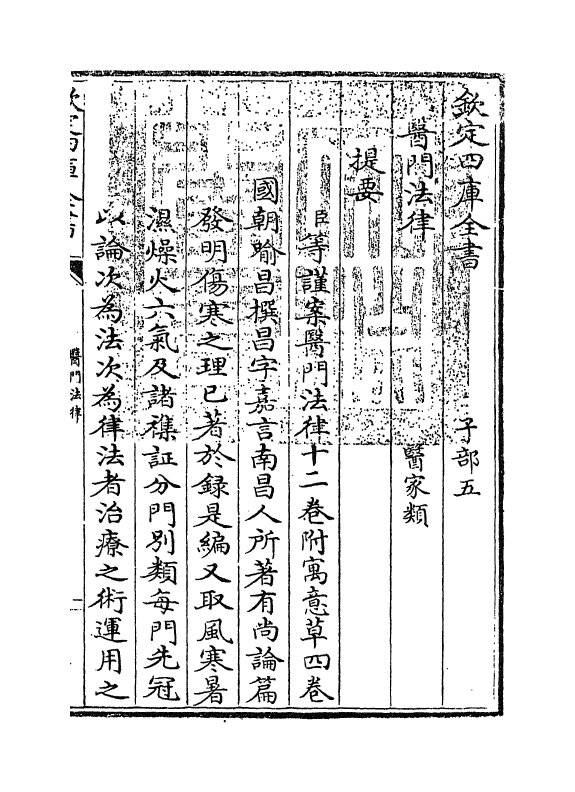 欽定四庫全書　子部五
醫門法律　醫家類
提要
臣等謹案醫門法律十二卷附寓意草四卷
國朝喻昌撰昌字嘉言南昌人所著有尚論篇
發明傷寒之理已著於録是編又取風寒暑
濕燥火六氣及諸襍証分門別類每門先冠
以論次為法次為律法者治療之術運用之
欽定四庫全書
醫門法律